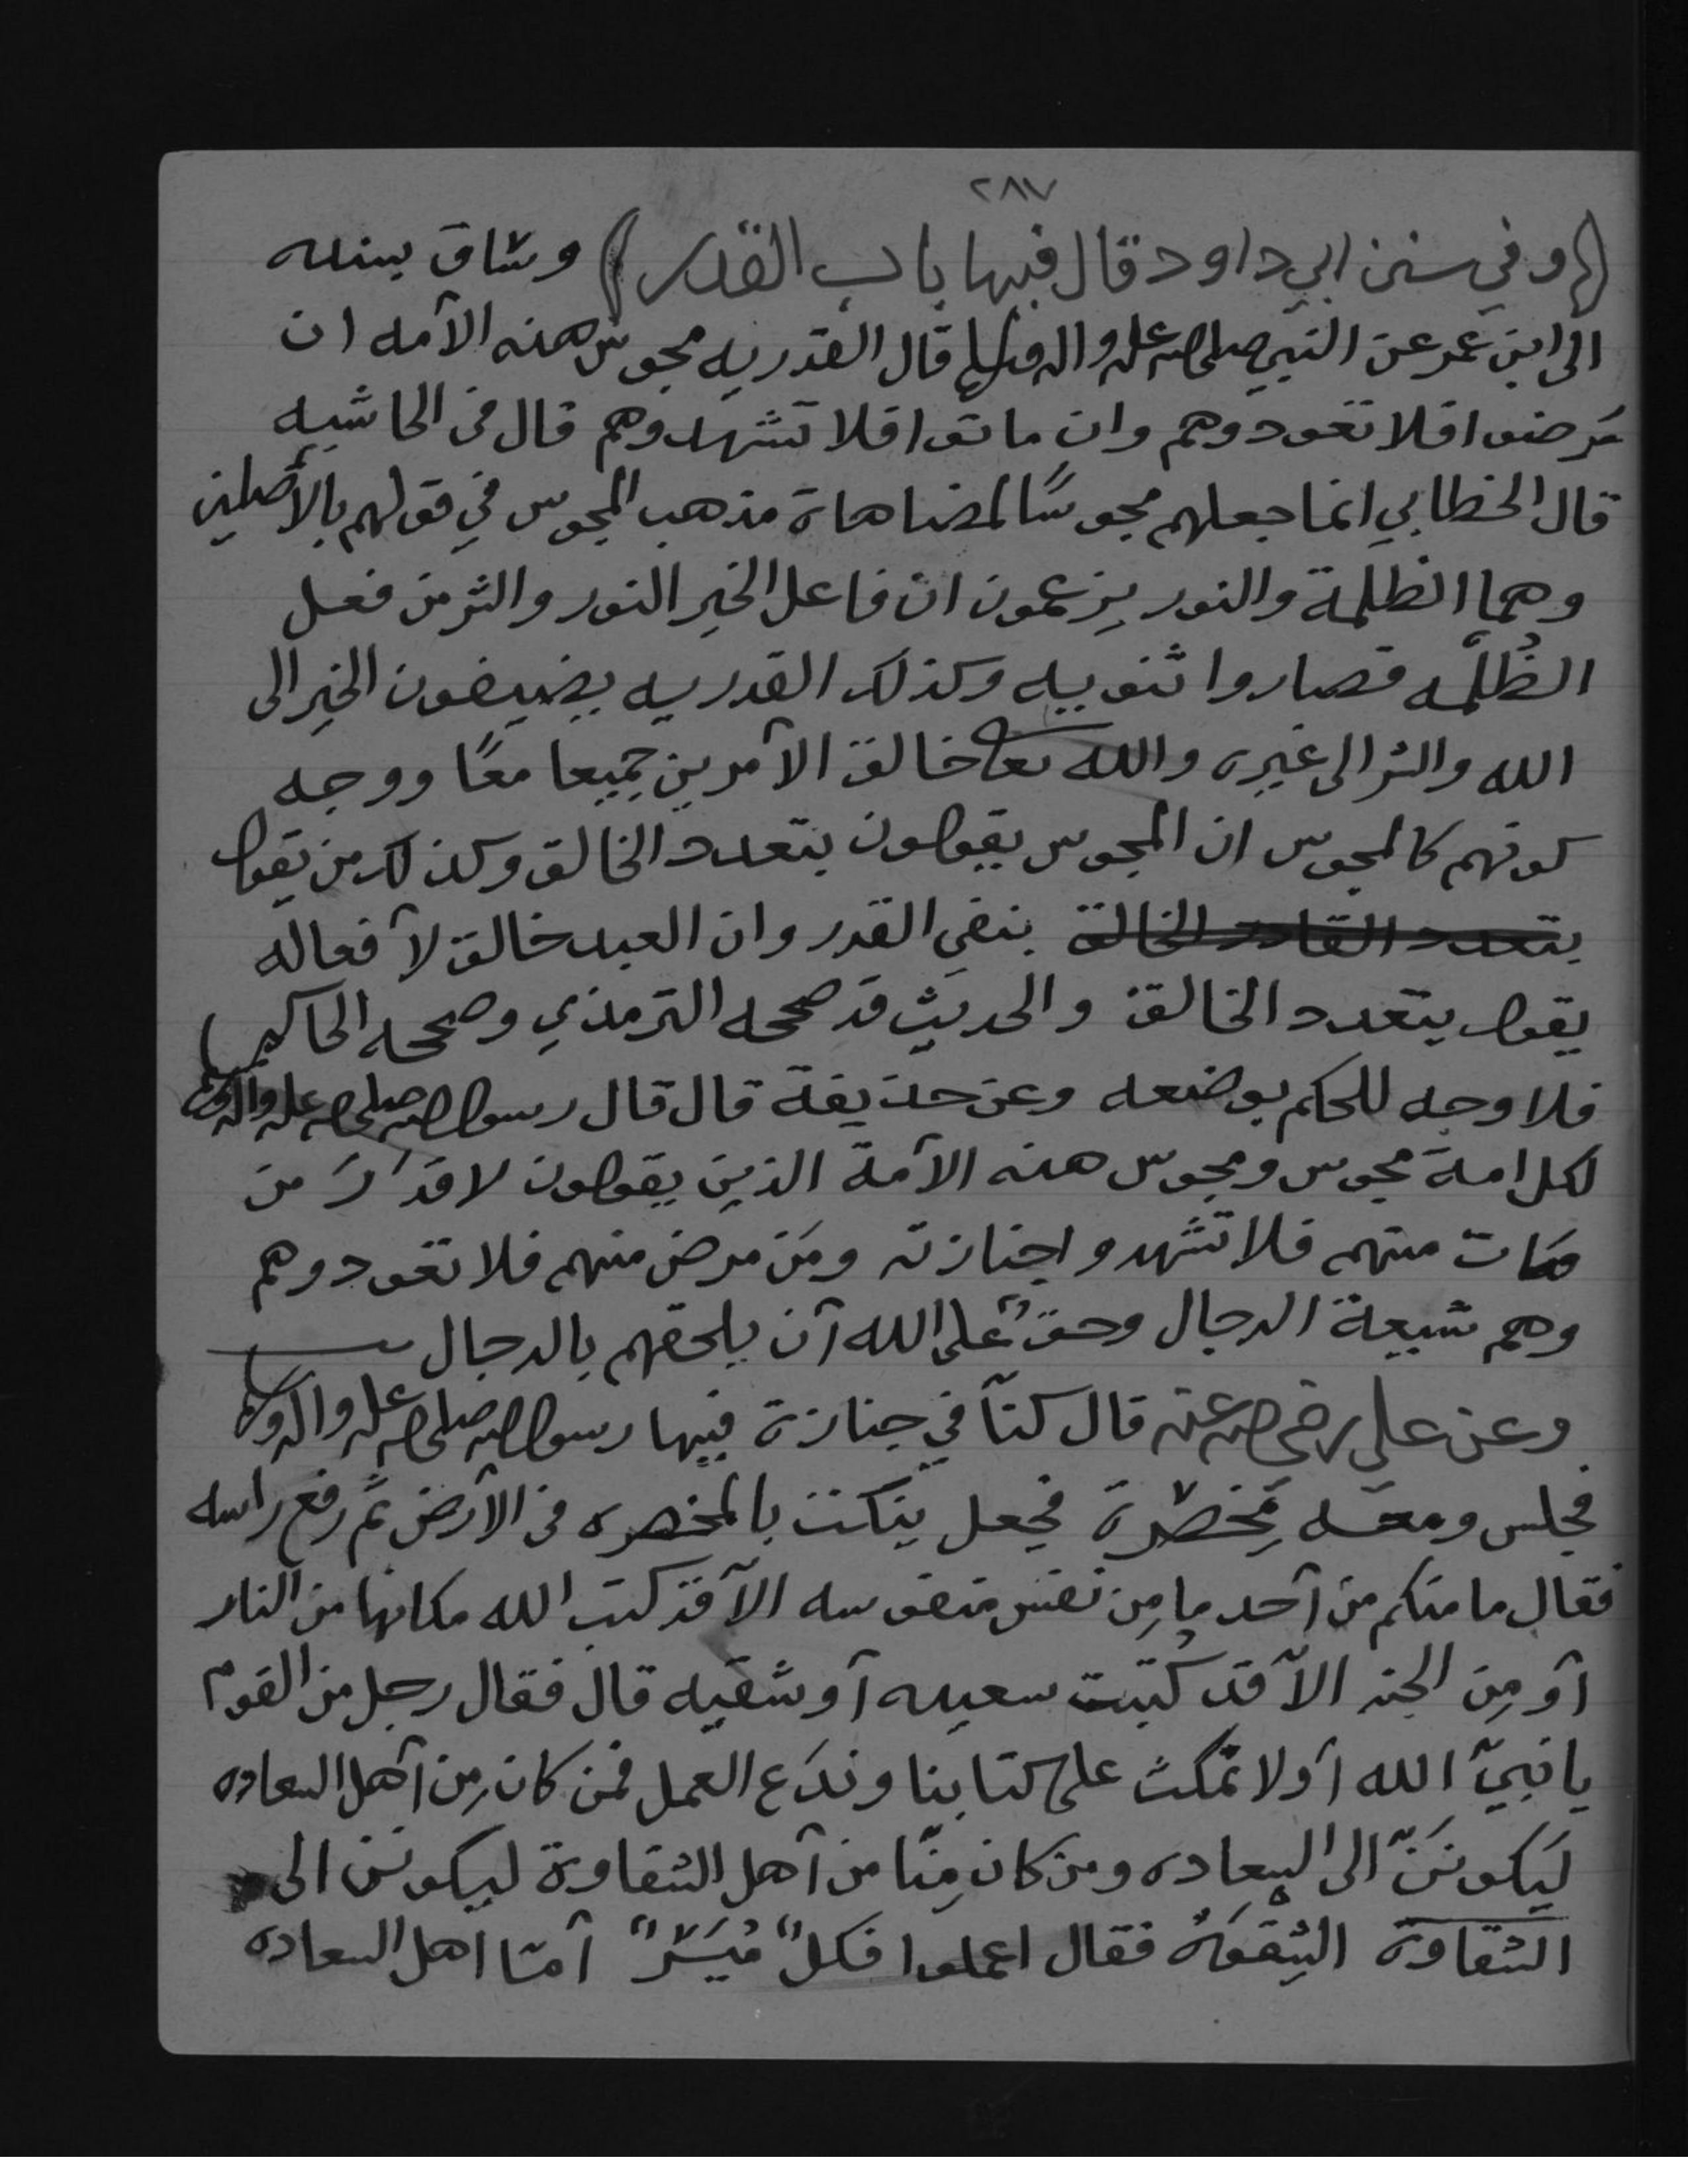 ٢٨٧
(وفي سنن ابي داود قال فيها باب القدر) وساق بسنده
الى ابن عمر عن النبي صلى الله عليه واله وسلم قال القدريه مجوس هذه الأمه ان
مَرضوا فلا تعودوهم وان ماتوا فلا تشهدوهم قال في الحاشيه
قال الخطابي انما جعلهم مجوسًا لمضاهاة مذهب المجوس في قولهم بالأصلين
وهما الظلمة والنور يزعمون ان فاعل الخير النور والشر من فعل
الظُلّمه فصاروا ثنويه وكذلك القدريه يضيفون الخير الى
الله والشر الى غيره والله تعالى خالق الأمرين جميعا معًا ووجه
كونهم كالمجوس ان المجوس يقولون بتعدد الخالق وكذلك من يقول
بتعدد القادر الخالق بنفي القدر وان العبد خالق لأفعاله
يقول بتعدد الخالق والحديث قد صححه الترمذي وصححه الحاكم)
فلا وجه للحكم بوضعه وعن حذيفة قال قال رسول الله صلى الله عليه واله وسلم
لكل امة مجوس ومجوس هذه الأمة الذين يقولون لا قدَرَ من
مات منهم فلا تشهدوا جنازته ومَن مرض منهم فلا تعودوهم
وهم شيعة الدجال وحقٌ على الله أن يلحقهم بالدجال
وعن علي رضي الله عنه قال كنّا في جنازة فيها رسول الله صلى الله عليه واله وسلم
فجلس ومعَه مِخصرة فجعل ينكت بالمخصره في الأرض ثمّ رفع راسه
فقال ما منكم من أحد ما مِن نفس منفوسه الاّ قد كتب الله مكانها من النار
أو مِن الجنه الاّ قد كُتِبت سعيده أو شقيه قال فقال رجل من القوم
يا نبيّ الله أولا نمكث على كتابنا وندَع العمل فمن كان مِن أهل السعاده
ليَكوننَّ الى السعاده ومن كان مِنّا من أهل الشقاوة ليكونن الى
الشقاوة الشِقوَه فقال اعملوا فكلٌ مُيَسَّرٌ أمّا اهل السعاده